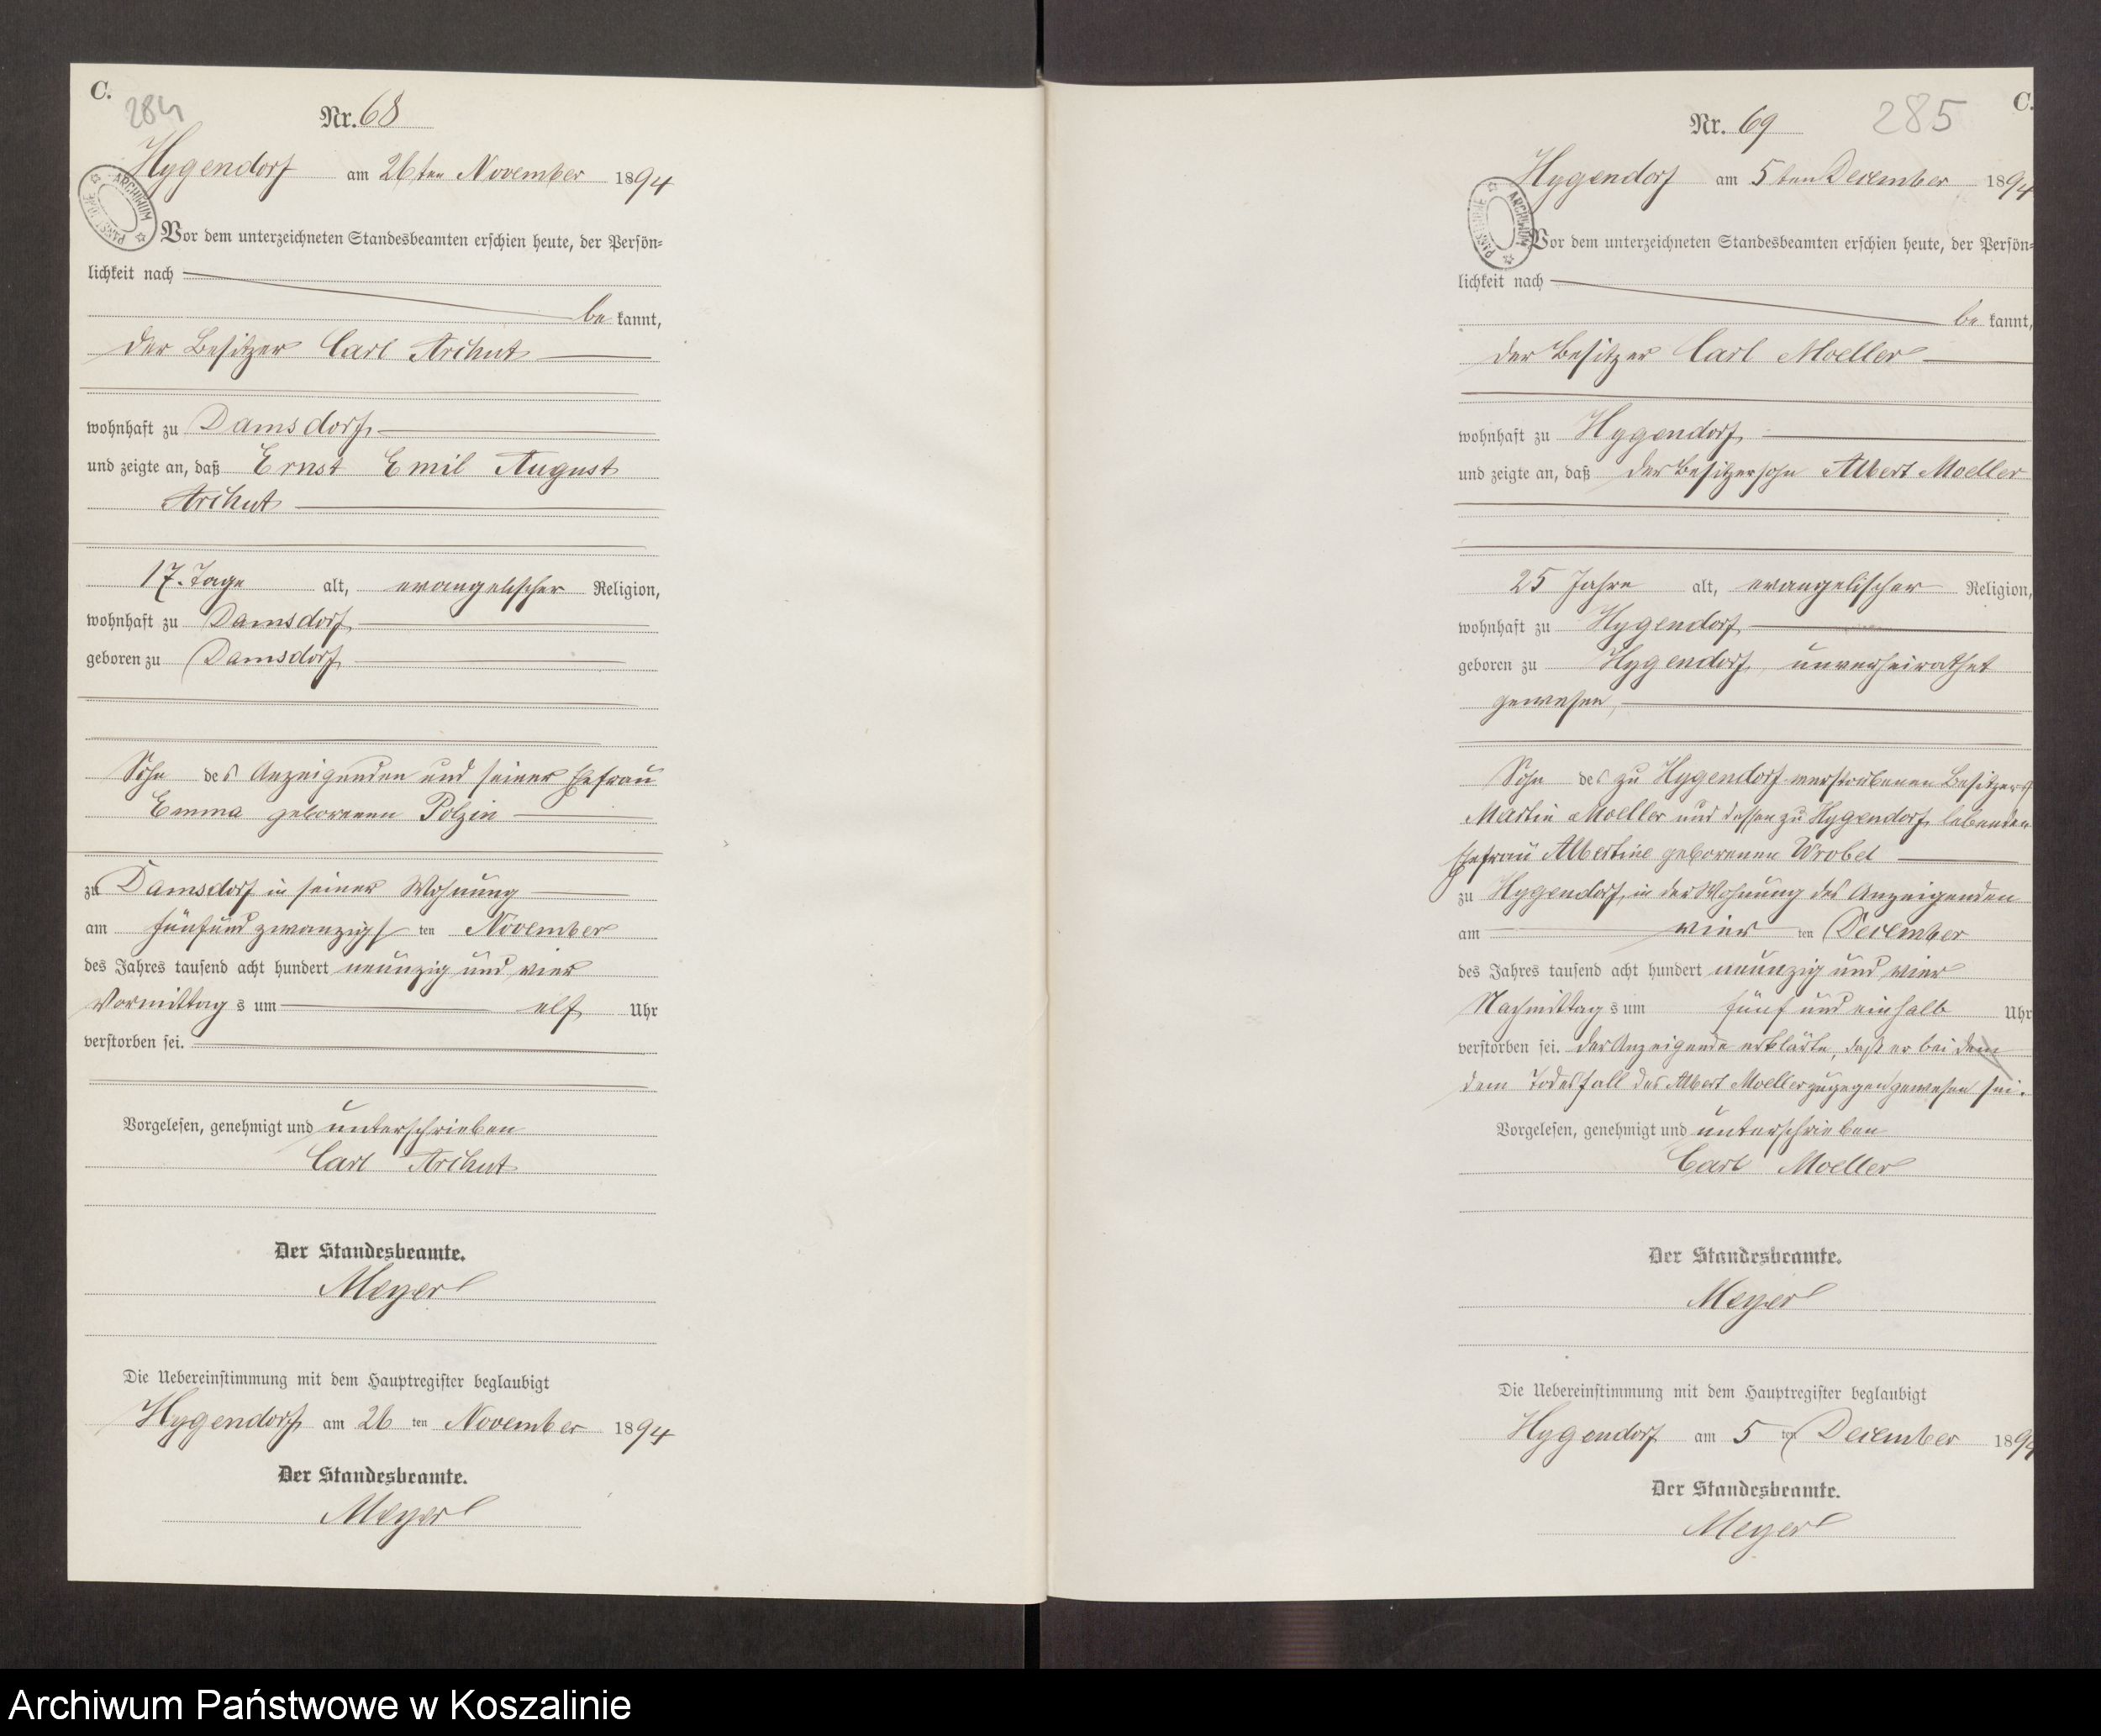 C.
284
Nr. 68
Hygendorf am 26ten November 1894
Vor dem unterzeichneten Standesbeamten erschien heute, der Persön-
lichkeit nach
be kannt,
der Besitzer Carl Archut
wohnhaft zu Damsdorf
und zeigte an, daß Ernst Emil August
Archut
17. Tage alt, evangelischer Religion,
wohnhaft zu Damsdorf
geboren zu Damsdorf
Sohn des Anzeigenden und seiner Ehefrau
Emma geborenen Polzin
zu Damsdorf in seiner Wohnung
am fünfundzwanzigs ten November
des Jahres tausend acht hundert neunzig und vier
Vormittag s um elf Uhr
verstorben sei.
Vorgelesen, genehmigt und unterschrieben
Carl Archut
Der Standesbeamte.
Meyer
Die Uebereinstimmung mit dem Hauptregister beglaubigt
Hygendorf am 26 ten November 1894
Der Standesbeamte.
Meyer
ARCHIWUM PAŃSTWOWE
C.
285
Nr. 69
Hygendorf am 5ten December 1894
Vor dem unterzeichneten Standesbeamten erschien heute, der Persön-
lichkeit nach
be kannt,
der Besitzer Carl Moeller
wohnhaft zu Hygendorf
und zeigte an, daß der Besitzersohn Albert Moeller
25 Jahre alt, evangelischer Religion,
wohnhaft zu Hygendorf
geboren zu Hygendorf, unverheirathet
gewesen,
Sohn des zu Hygendorf verstorbenen Besitzers
Martin Moeller und dessen zu Hygendorf lebenden
Ehefrau Albertine geborenen Wrobel
zu Hygendorf, in der Wohnung des Anzeigenden
am vier ten December
des Jahres tausend acht hundert neunzig und vier
Nachmittag s um fünf und einhalb Uhr
verstorben sei. Der Anzeigende erklärte, daß er bei dem
dem Todesfall des Albert Moeller zugegen gewesen sei.
Vorgelesen, genehmigt und unterschrieben
Carl Moeller
Der Standesbeamte.
Meyer
Die Uebereinstimmung mit dem Hauptregister beglaubigt
Hygendorf am 5 ten December 1894
Der Standesbeamte.
Meyer
ARCHIWUM PAŃSTWOWE
Archiwum Państwowe w Koszalinie